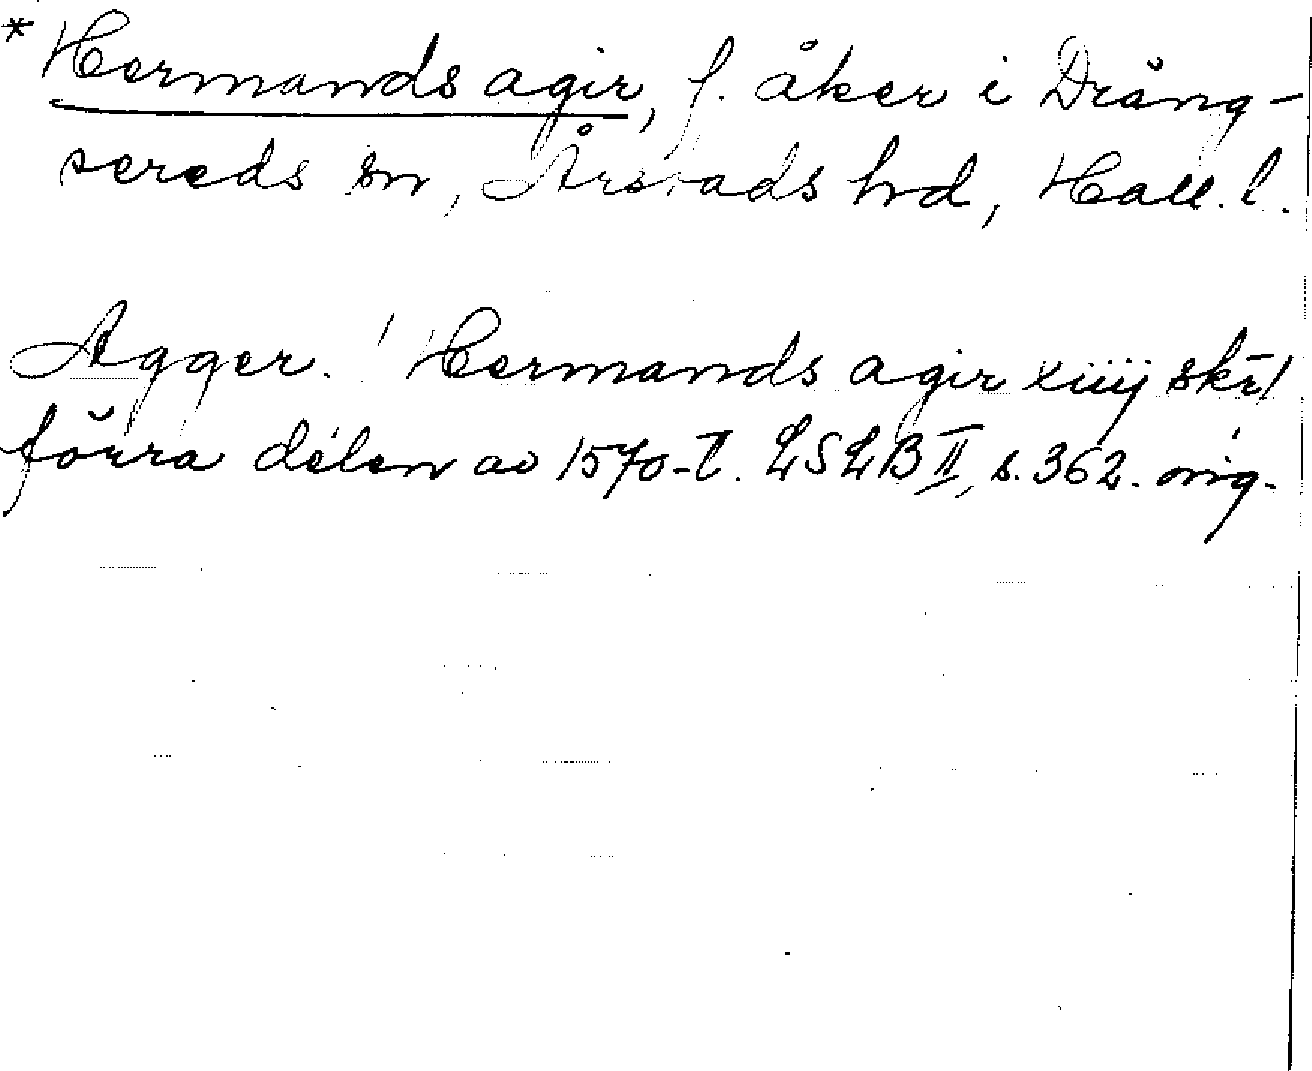 * Hermands agir, f. åker i Dräng-
sereds sn, Årstads hrd, Hall. l.
Agger. / Hermands agir xiiij skr̄/
förra delen av 1570-t. LSLB II, s. 362. orig.